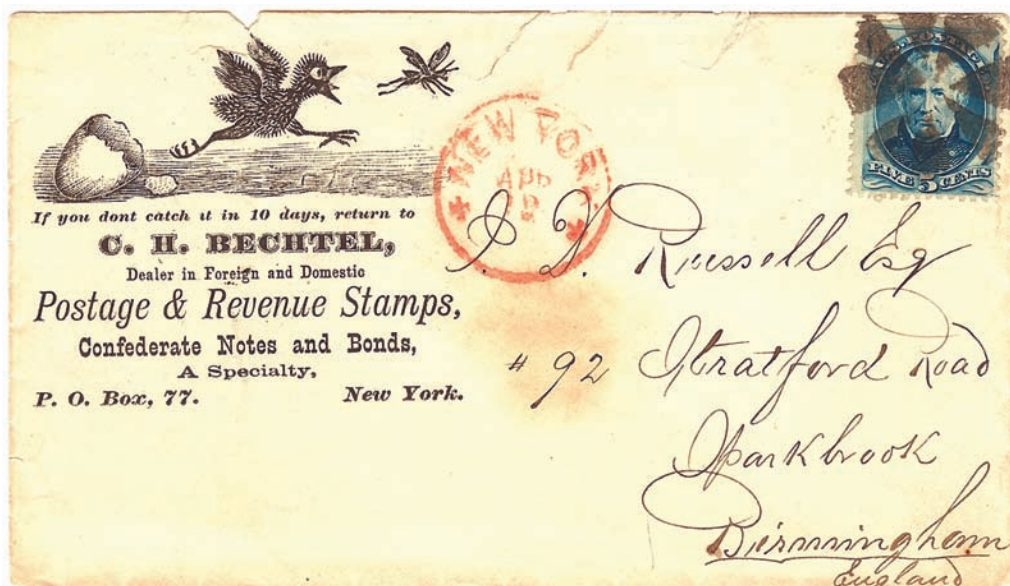 If you dont catch it in 10 days, return to
C. H. BECHTEL,
Dealer in Foreign and Domestic
Postage & Revenue Stamps,
Confederate Notes and Bonds,
A Specialty,
P. O. Box, 77. New York.
NEW YORK
APR
FIVE 5 CENTS
Russell Esq
# 92 Stratford Road
Sparkbrook
Birmingham
England